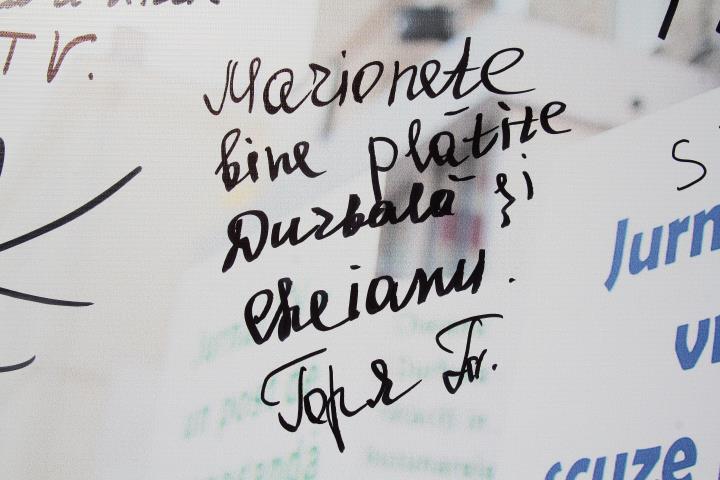 TV.
Marionete
bine plătite
Durbală și
Cheianu.
Țopa Tr.
Jurn
vr
scuze
un post de